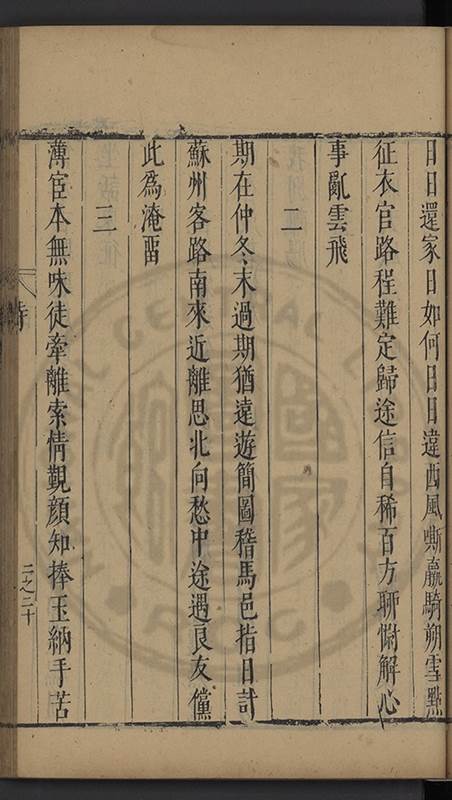 日日還家日如何日日違西風嘶羸騎朔雪㸃
征衣官路程難定歸途信自稀百方聊慰解心
事亂雲飛
二
期在仲冬末過期猶遠遊簡圖稽馬邑指日計
蘇州客路南來近離思北向愁中途遇良友儻
此為淹畱
三
薄宦本無味徒牽離索情覩顏知捧玉納手苦
詩
二之二十